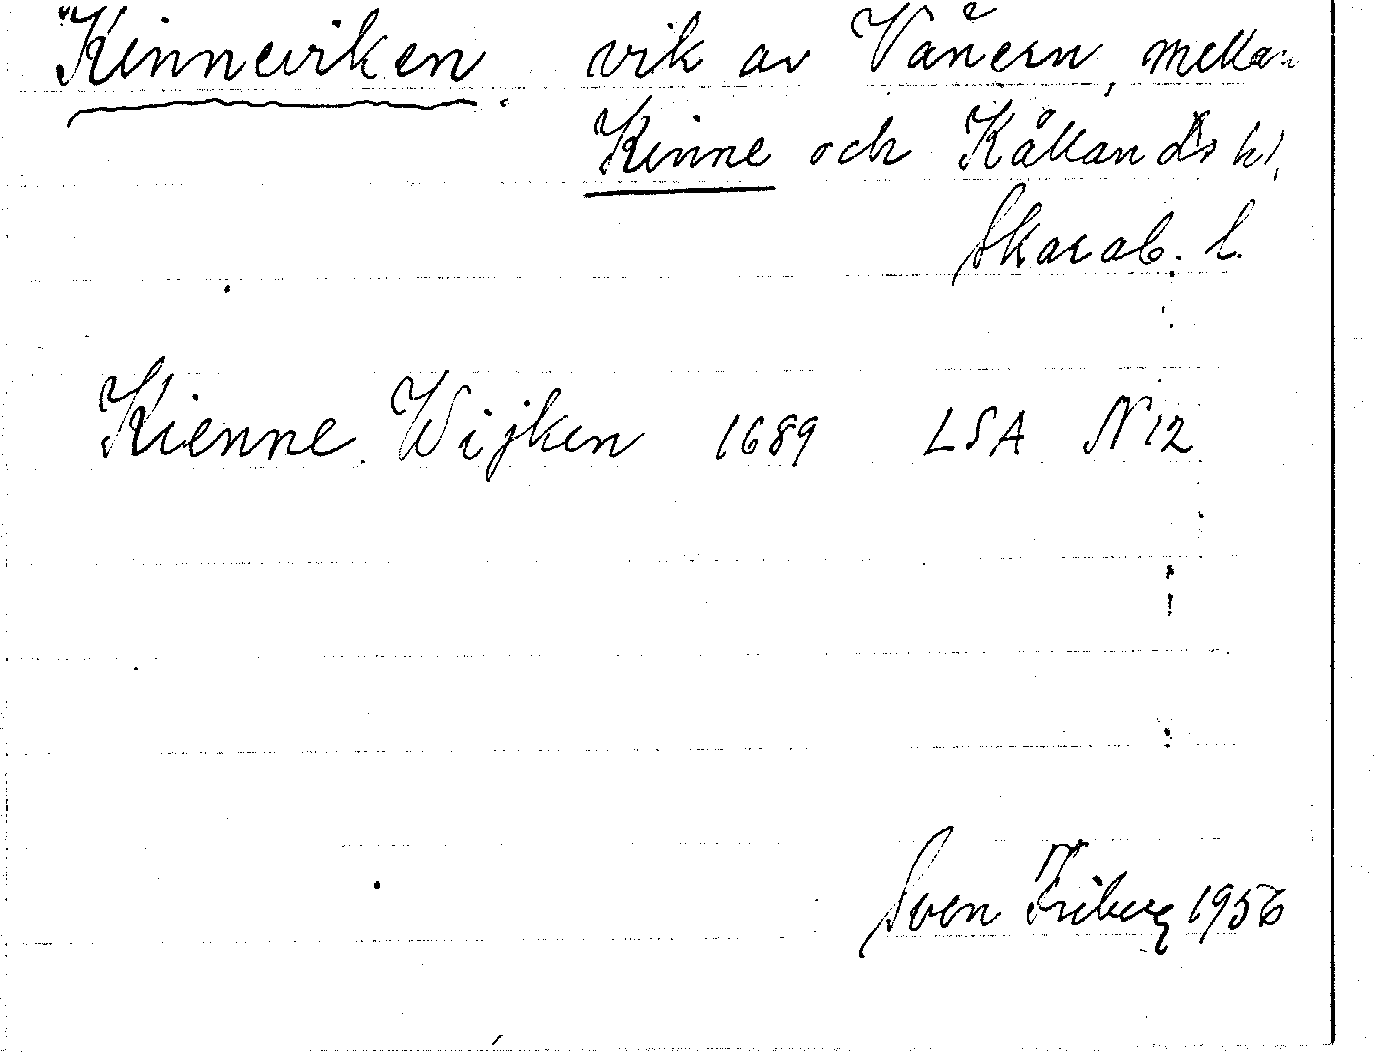 Kinneviken vik av Vänern, mellan
Kinne och Kållands hd,
Skarab. l.
Kienne Wijken 1689 LSA N12
Sven Friberg 1956